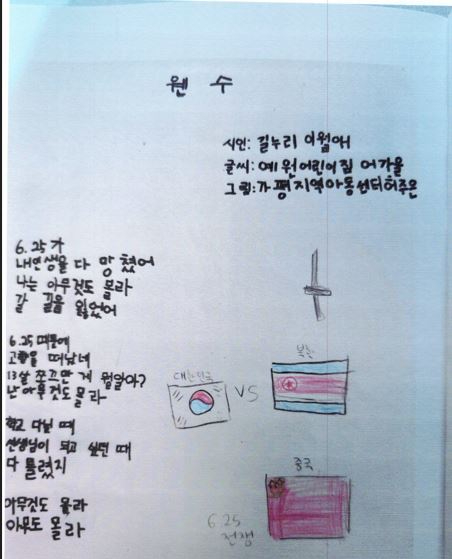 웬 수
시인: 길누리 이월애
글씨: 예원어린이집 어가율
그림: 가평지역아동센터 허주은
6.25가
내 인생을 다 망쳤어
나는 아무것도 몰라
갈 길을 잃었어
6.25 때문에
고향을 떠났네
13살 쪼끄만 게 뭘알아?
난 아무것도 몰라
학교 다닐 때
선생님이 되고 싶던 때
다 틀렸지
아무것도 몰라
아무도 몰라
대한민국
VS
북한
중국
6.25
전쟁